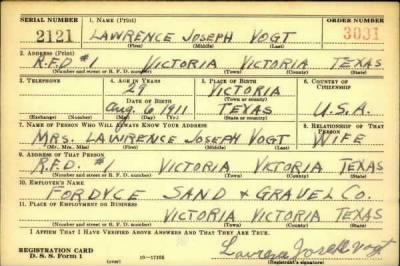 SERIAL NUMBER 1. NAME (Print) ORDER NUMBER
2121 LAWRENCE JOSEPH VOGT 3031
(First) (Middle) (Last)
2. ADDRESS (Print)
R.F.D #1 VICTORIA VICTORIA TEXAS
(Number and street or R. F. D. number) (Town) (County) (State)
3. TELEPHONE 4. AGE IN YEARS 5. PLACE OF BIRTH 6. COUNTRY OF CITIZENSHIP
29 VICTORIA
DATE OF BIRTH (Town or county)
Aug. 6 1911 TEXAS U.S.A.
(Exchange) (Number) (Mo.) (Day) (Yr.) (State or country)
7. NAME OF PERSON WHO WILL ALWAYS KNOW YOUR ADDRESS 8. RELATIONSHIP OF THAT PERSON
MRS. LAWRENCE JOSEPH VOGT WIFE
(Mr., Mrs., Miss) (First) (Middle) (Last)
9. ADDRESS OF THAT PERSON
R.F.D. #1 VICTORIA VICTORIA TEXAS
(Number and street or R. F. D. number) (Town) (County) (State)
10. EMPLOYER'S NAME
FORDYCE SAND & GRAVEL CO.
11. PLACE OF EMPLOYMENT OR BUSINESS
VICTORIA VICTORIA TEXAS
(Number and street or R. F. D. number) (Town) (County) (State)
I AFFIRM THAT I HAVE VERIFIED ABOVE ANSWERS AND THAT THEY ARE TRUE.
REGISTRATION CARD
D. S. S. Form 1 (over) Lawrence Joseph Vogt
(Registrant's signature)